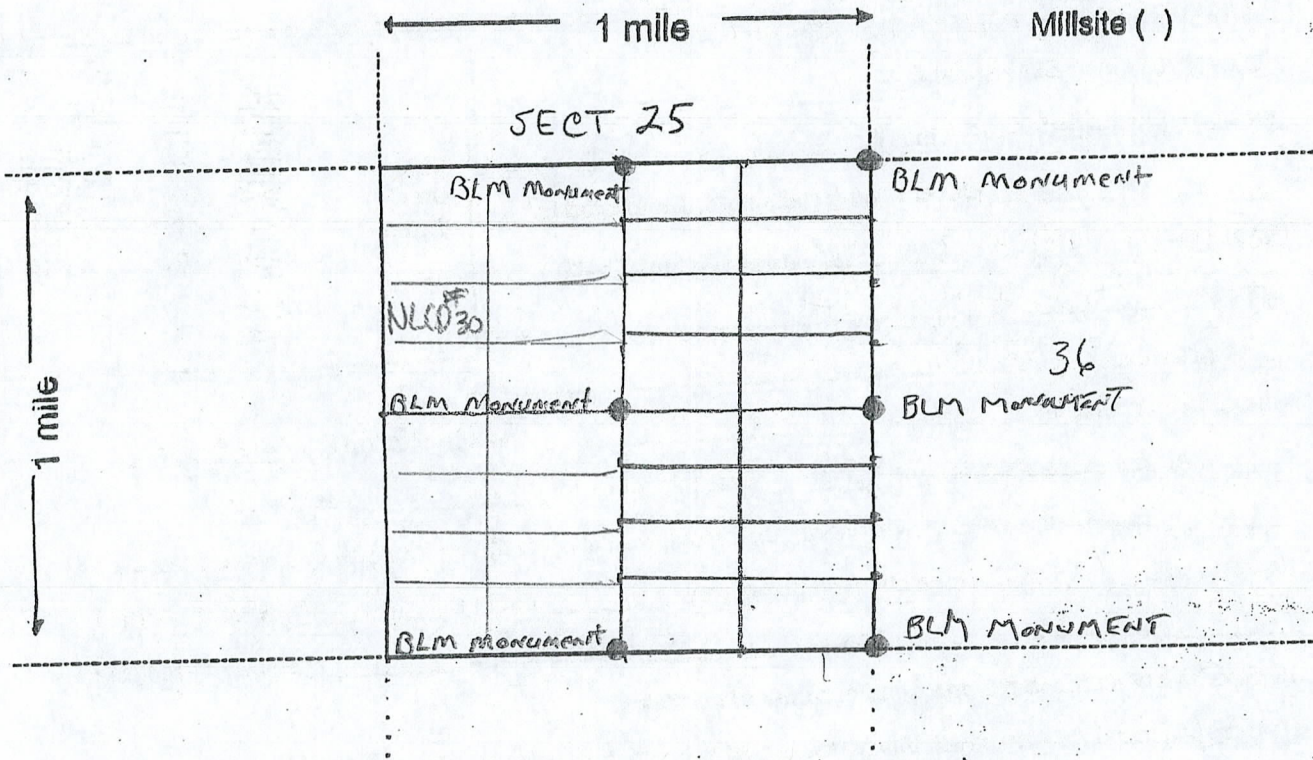 1 mile
Millsite ( )
SECT 25
BLM Monument
BLM Monument
1 mile
NLCD #30
36
BLM Monument
BLM MONUMENT
BLM Monument
BLM MONUMENT